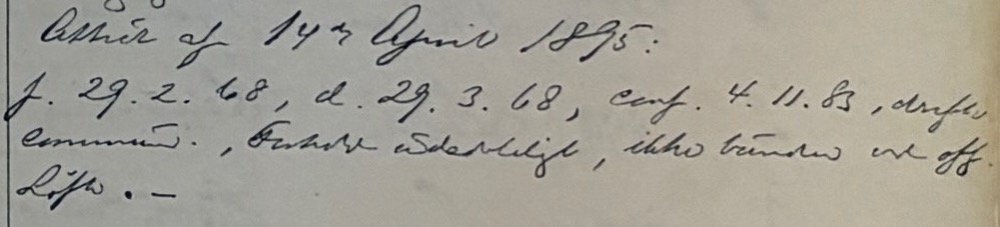 Attest af 14de April 1895:
f. 29.2.68, d. 29.3.68, conf. 4.11.83,
commun., Forhold udadleligt, ikke bunden ved off.
Löfte. —